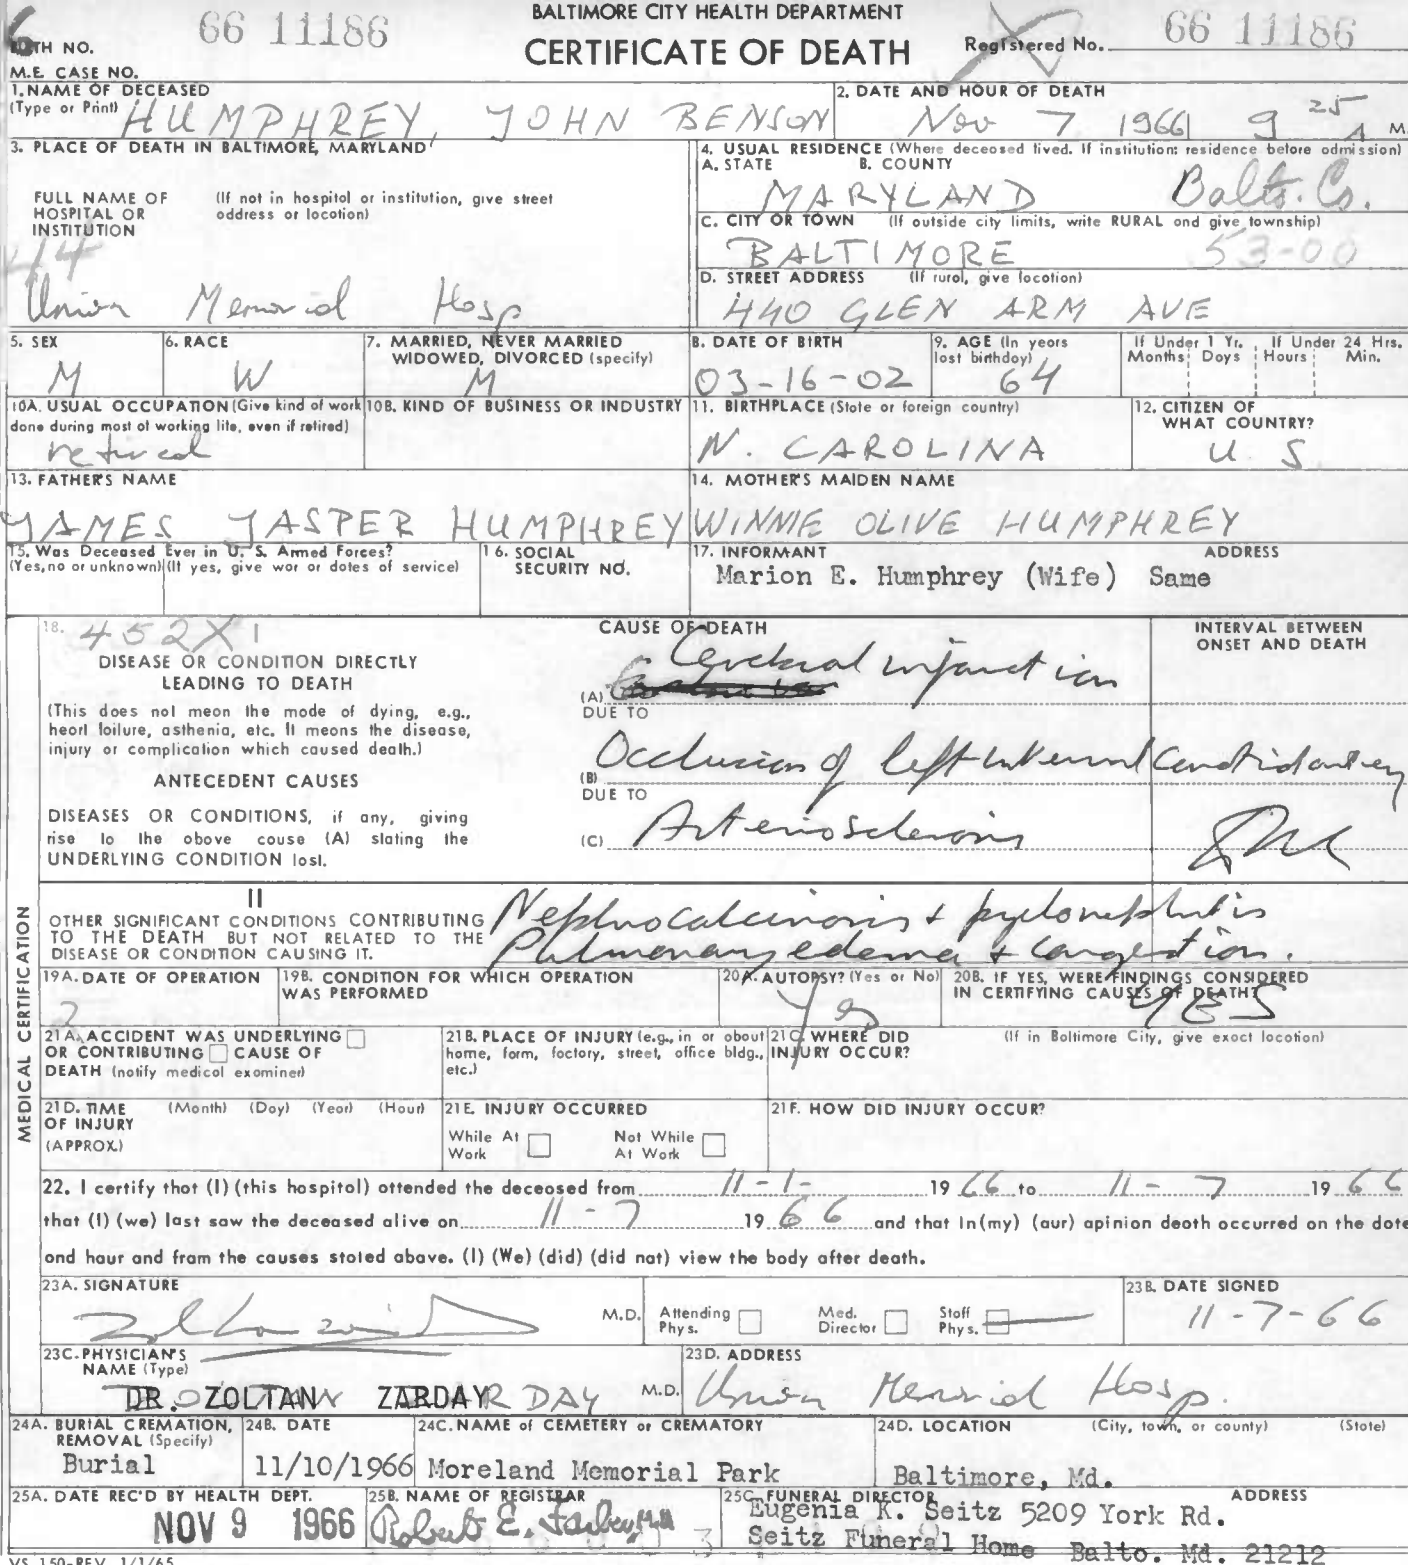 BALTIMORE CITY HEALTH DEPARTMENT
66 11186 CERTIFICATE OF DEATH Registered No. 66 11186
BIRTH NO.
M.E. CASE NO.
1. NAME OF DECEASED
(Type or Print) HUMPHREY, JOHN BENSON
2. DATE AND HOUR OF DEATH
Nov 7 1966 9 25 A M.
3. PLACE OF DEATH IN BALTIMORE, MARYLAND
FULL NAME OF HOSPITAL OR INSTITUTION
(If not in hospital or institution, give street address or location)
44
Union Memorial Hosp
4. USUAL RESIDENCE (Where deceased lived. If institution: residence before admission)
A. STATE B. COUNTY
MARYLAND Balto. Co.
C. CITY OR TOWN (If outside city limits, write RURAL and give township)
BALTIMORE 53-00
D. STREET ADDRESS (If rural, give location)
440 GLEN ARM AVE
5. SEX
M
6. RACE
W
7. MARRIED, NEVER MARRIED
WIDOWED, DIVORCED (specify)
M
8. DATE OF BIRTH
03-16-02
9. AGE (In years
last birthday)
64
If Under 1 Yr. If Under 24 Hrs.
Months Days Hours Min.
10A. USUAL OCCUPATION (Give kind of work
done during most of working life, even if retired)
retired
10B. KIND OF BUSINESS OR INDUSTRY
11. BIRTHPLACE (State or foreign country)
N. CAROLINA
12. CITIZEN OF
WHAT COUNTRY?
U S
13. FATHER'S NAME
JAMES JASPER HUMPHREY
14. MOTHER'S MAIDEN NAME
WINNIE OLIVE HUMPHREY
15. Was Deceased Ever in U. S. Armed Forces?
(Yes, no or unknown) (If yes, give war or dates of service)
16. SOCIAL
SECURITY NO.
17. INFORMANT ADDRESS
Marion E. Humphrey (Wife) Same
MEDICAL CERTIFICATION
18. 452X1
DISEASE OR CONDITION DIRECTLY
LEADING TO DEATH
(This does not mean the mode of dying, e.g.,
heart failure, asthenia, etc. It means the disease,
injury or complication which caused death.)
ANTECEDENT CAUSES
DISEASES OR CONDITIONS, if any, giving
rise to the above cause (A) stating the
UNDERLYING CONDITION last.
CAUSE OF DEATH
Cerebral infarction
(A)
DUE TO
Occlusion of left internal carotid artery
(B)
DUE TO
(C) Arteriosclerosis
INTERVAL BETWEEN
ONSET AND DEATH
II
OTHER SIGNIFICANT CONDITIONS CONTRIBUTING
TO THE DEATH BUT NOT RELATED TO THE
DISEASE OR CONDITION CAUSING IT.
Nephrocalcinosis + pyelonephritis
Pulmonary edema + congestion.
19A. DATE OF OPERATION
19B. CONDITION FOR WHICH OPERATION
WAS PERFORMED
20A. AUTOPSY? (Yes or No)
Yes
20B. IF YES, WERE FINDINGS CONSIDERED
IN CERTIFYING CAUSES OF DEATH?
YES
21A. ACCIDENT WAS UNDERLYING
OR CONTRIBUTING CAUSE OF
DEATH (notify medical examiner)
21B. PLACE OF INJURY (e.g., in or about
home, farm, factory, street, office bldg.,
etc.)
21C. WHERE DID
INJURY OCCUR?
(If in Baltimore City, give exact location)
21D. TIME (Month) (Day) (Year) (Hour)
OF INJURY
(APPROX.)
21E. INJURY OCCURRED
While At Work Not While At Work
21F. HOW DID INJURY OCCUR?
22. I certify that (I) (this hospital) attended the deceased from 11-1- 1966 to 11-7 1966
that (I) (we) last saw the deceased alive on 11-7 1966 and that in (my) (our) opinion death occurred on the date
and hour and from the causes stated above. (I) (We) (did) (did not) view the body after death.
23A. SIGNATURE
M.D. Attending Phys. Med. Director Staff Phys.
23B. DATE SIGNED
11-7-66
23C. PHYSICIAN'S
NAME (Type)
DR. ZOLTAN ZARDAY M.D.
23D. ADDRESS
Union Memorial Hosp.
24A. BURIAL CREMATION,
REMOVAL (Specify)
Burial
24B. DATE
11/10/1966
24C. NAME of CEMETERY or CREMATORY
Moreland Memorial Park
24D. LOCATION (City, town, or county) (State)
Baltimore, Md.
25A. DATE REC'D BY HEALTH DEPT.
NOV 9 1966
25B. NAME OF REGISTRAR
Robert E. Farber, M.D.
25C. FUNERAL DIRECTOR ADDRESS
Eugenia K. Seitz 5209 York Rd.
Seitz Funeral Home Balto. Md. 21212
VS 150-REV. 1/1/65